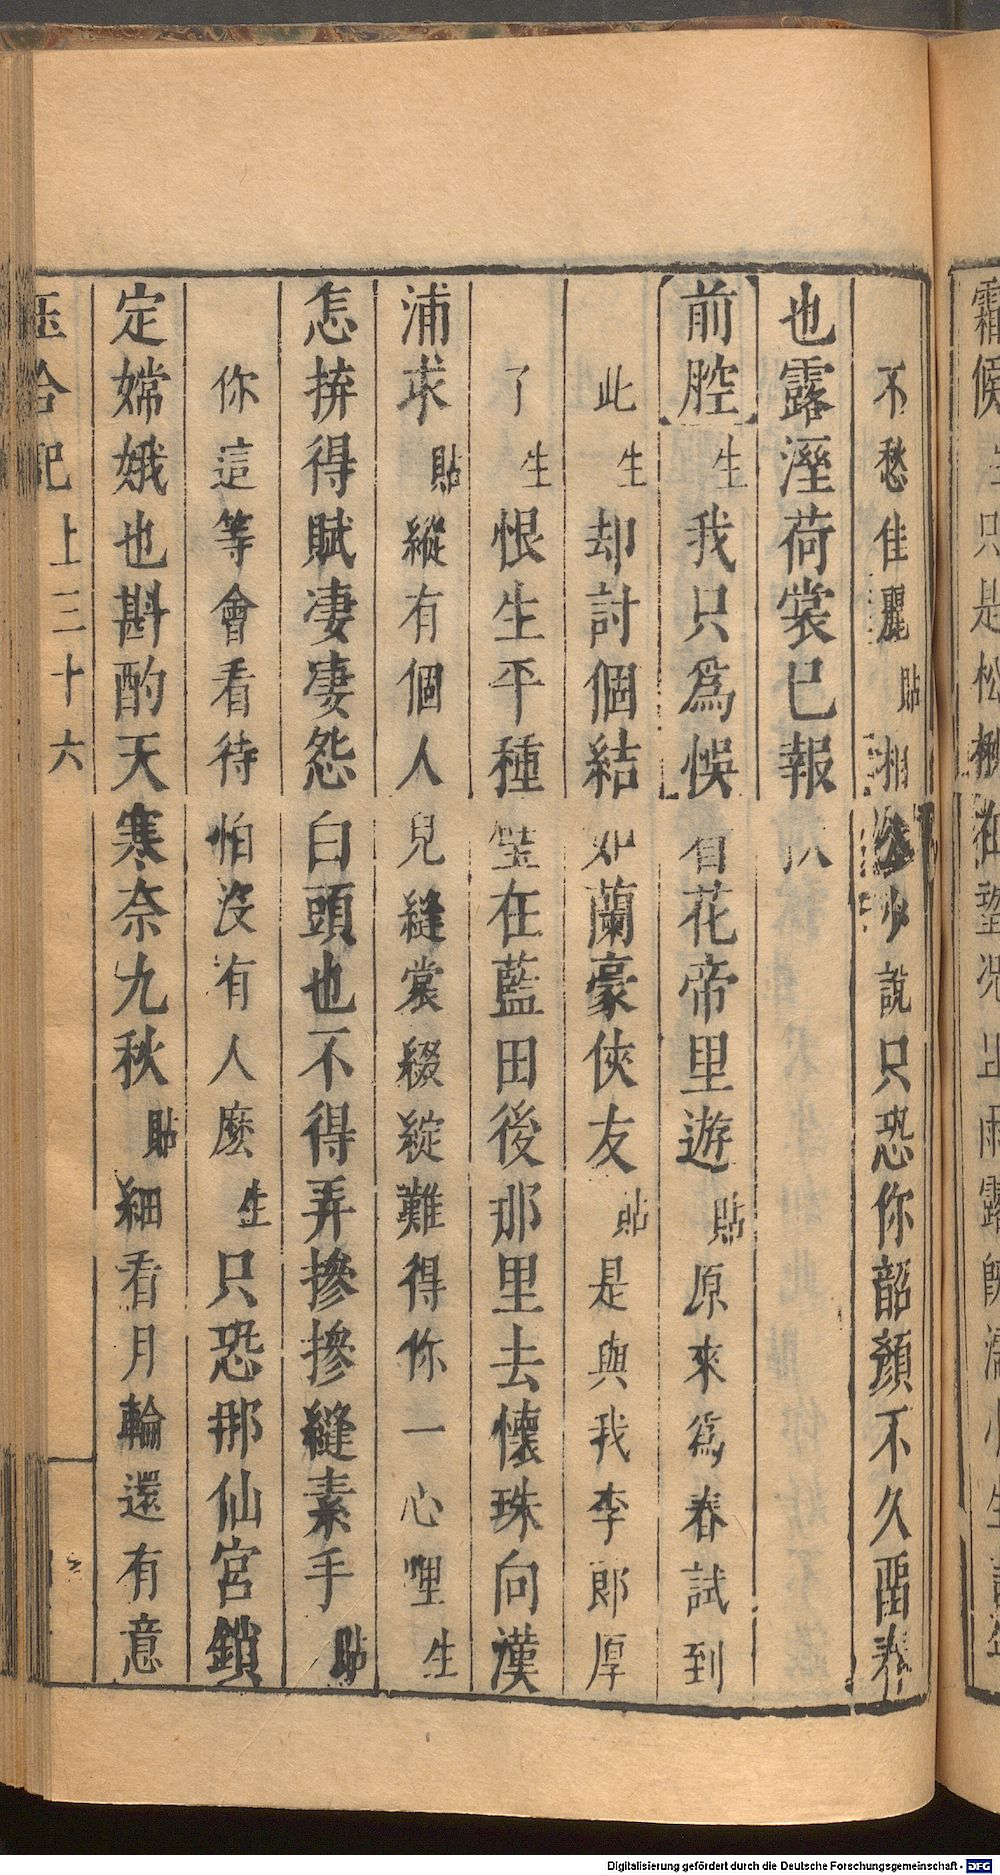 不愁佳麗貼相公少說只恐你韶顏不久畱春
也露溼荷裳已報秋
前腔生我只爲悞看花帝里遊貼原來爲春試到
此生却討個結如蘭豪俠友貼是與我李郎厚
了生恨生平種璧在藍田後那里去懷珠向漢
浦求貼縱有個人兒縫裳綴綻難得你一心哩生
怎拚得賦凄凄怨白頭也不得弄摻摻縫素手貼
你這等會看待怕没有人麽生只恐那仙宮鎖
定嫦娥也斟酌天寒奈九秋貼細看月輪還有意
玉合記上三十六
霜候生只是松楸在望況
雨露
Digitalisierung gefördert durch die Deutsche Forschungsgemeinschaft - DFG